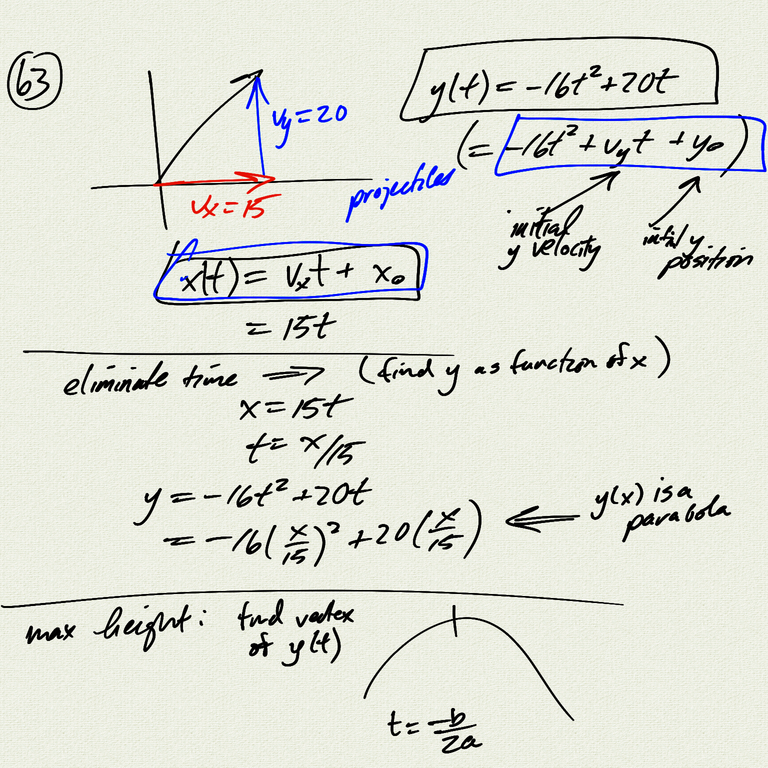 63
v_y = 20
v_x = 15
projectiles
y(t) = -16t² + 20t
(= -16t² + v_y t + y₀)
initial
y velocity
initial y
position
x(t) = v_x t + x₀
= 15t
eliminate time ⇒ (find y as function of x)
x = 15t
t = x/15
y = -16t² + 20t
= -16(x/15)² + 20(x/15)
⇐ y(x) is a
parabola
max height: find vertex
of y(t)
t = -b/2a